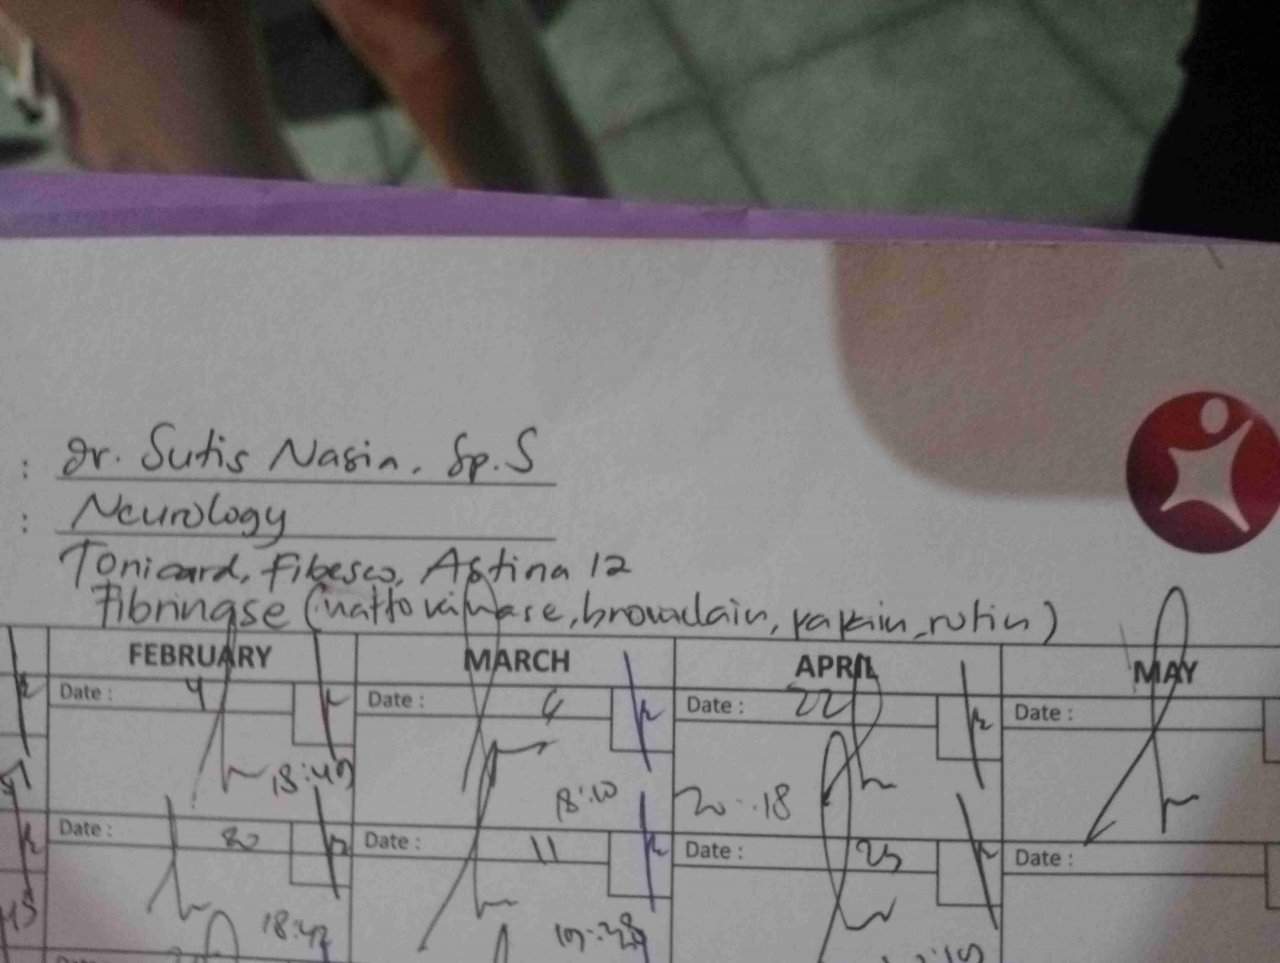 : dr. Sutis Nasin. Sp.S
: Neurology
Tonicard, Fibesco, Astina 12
Fibringse (nattokinase, bromelain, papain, rutin)
FEBRUARY MARCH APRIL MAY
Date : 4 Date : 6 Date : 22 Date :
18:49 18:10 20:18
Date : Date : 11 Date : 25 Date :
18:42